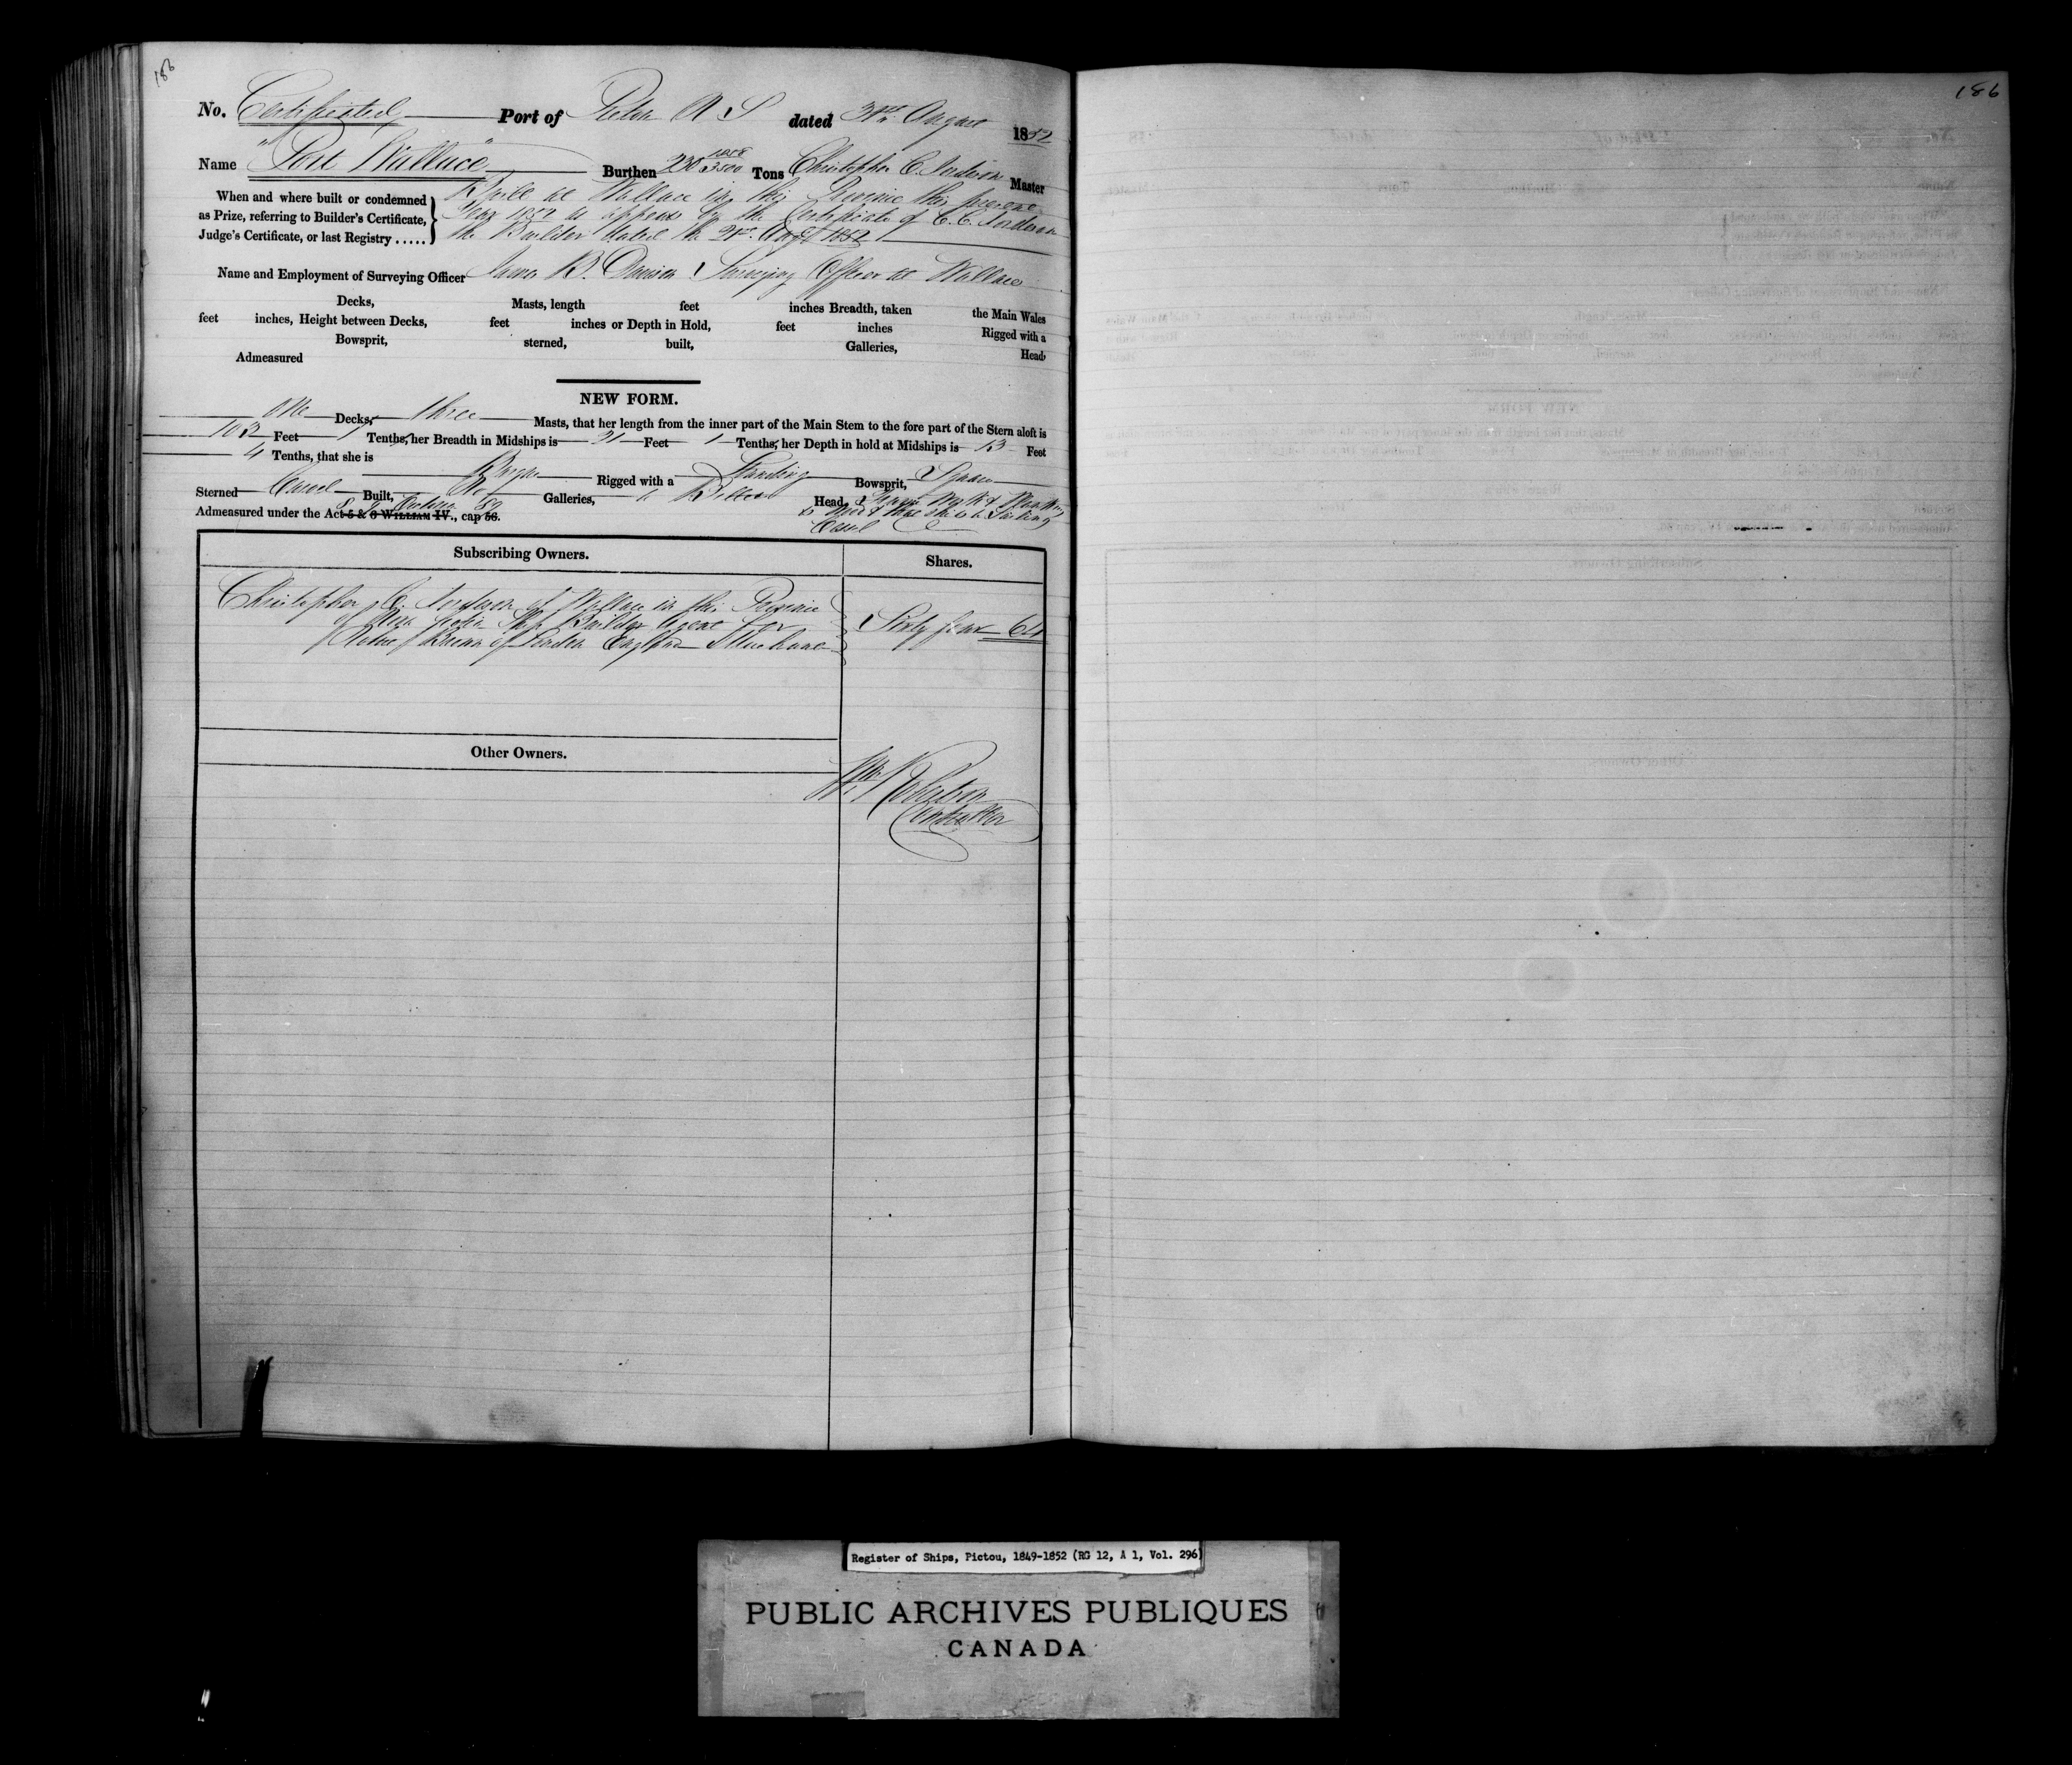 186
186
No. Certificated Port of Pictou N S dated 31st August 1852
Name "Port Wallace" Burthen 230 1258/3500 Tons Christopher C. Master
When and where built or condemned as Prize, referring to Builder's Certificate, Judge's Certificate, or last Registry .....
Built at Wallace in this Province this present
Year 1852 as appears by the Certificate of C. C.
the Builder dated the 21st Augt 1852
Name and Employment of Surveying Officer James B. Davison Surveying Officer at Wallace
Decks, Masts, length feet inches Breadth, taken the Main Wales
feet inches, Height between Decks, feet inches or Depth in Hold, feet inches Rigged with a
Bowsprit, sterned, built, Galleries, Head,
Admeasured
NEW FORM.
One Decks, three Masts, that her length from the inner part of the Main Stem to the fore part of the Stern aloft is
103 Feet 1 Tenths, her Breadth in Midships is 21 Feet 1 Tenths, her Depth in hold at Midships is 13 Feet
4 Tenths, that she is
Barque Rigged with a Standing Bowsprit, Square
Sterned Carvel Built, No Galleries, a Billet Head,
Admeasured under the Act 5 & 6 WILLIAM IV., cap 56.
8 & 9 Victoria 89
Vessel
Subscribing Owners. Shares.
Christopher C. of Wallace in this Province
of Nova Scotia Ship Builder Agent for
of London England Merchant
Sixty four 64
Other Owners.
Wm Robertson
Controller
Register of Ships, Pictou, 1849-1852 (RG 12, A 1, Vol. 296)
PUBLIC ARCHIVES PUBLIQUES
CANADA